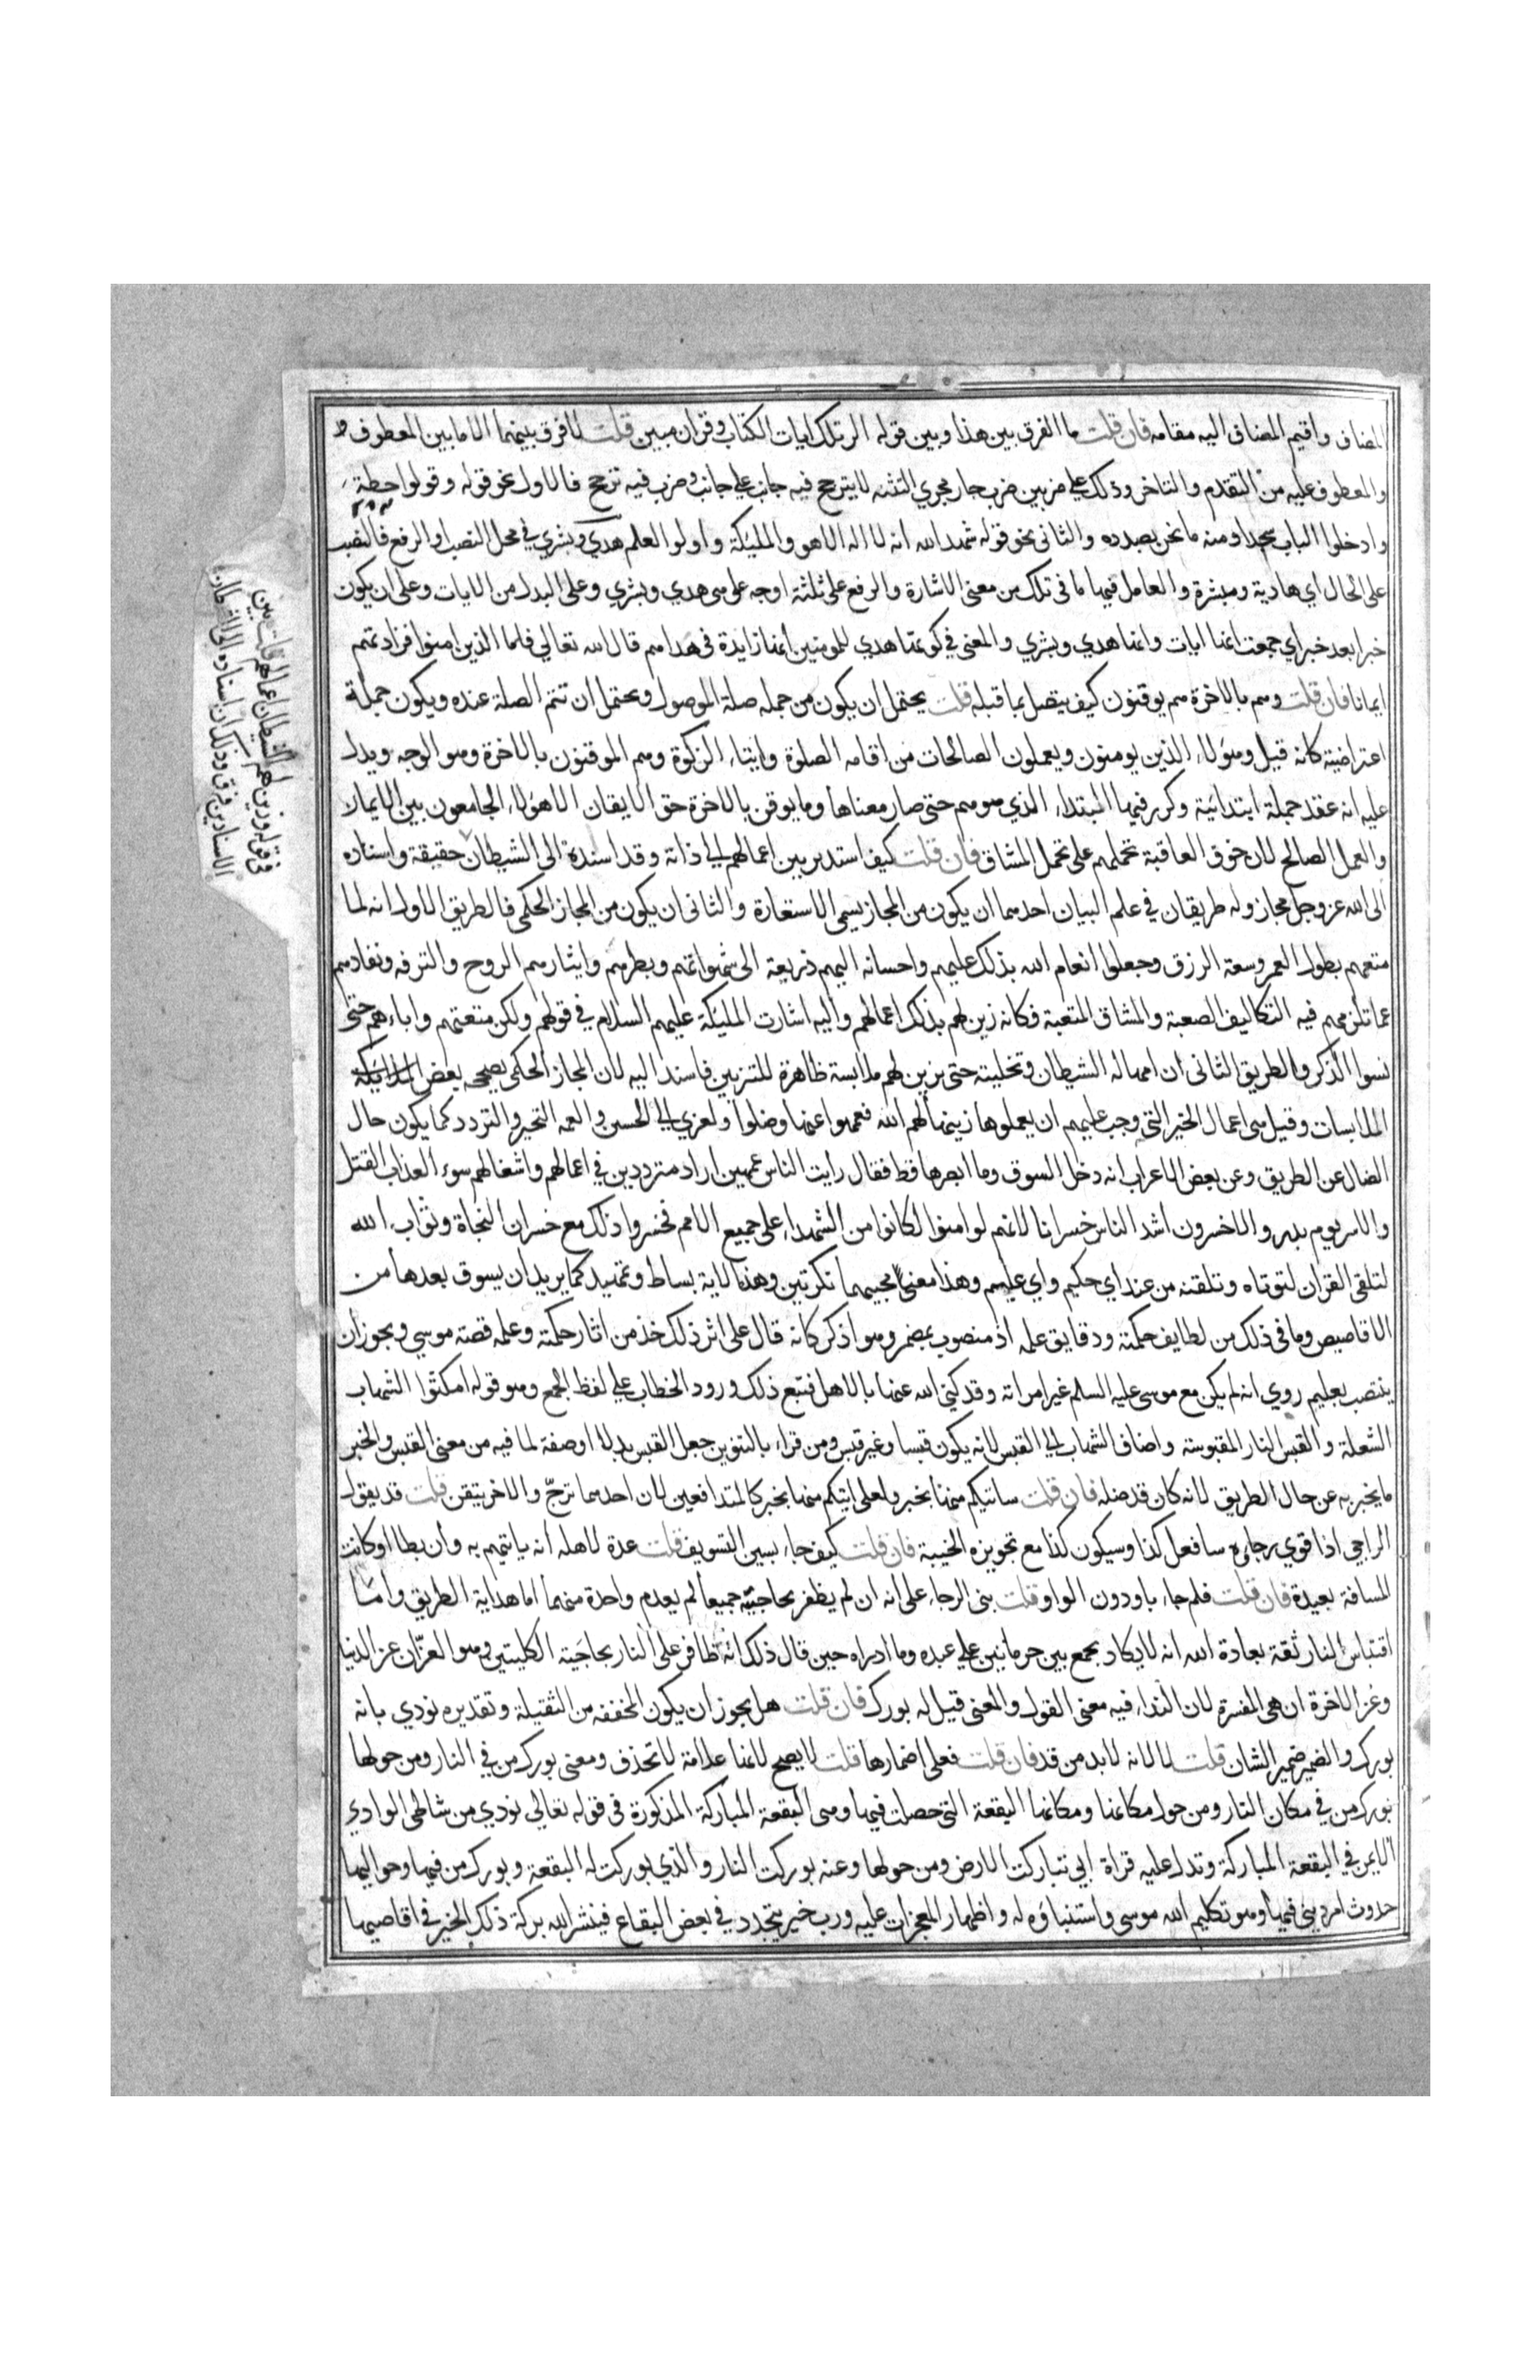 المضاف واقيم المضاف اليه مقامه فان قلت ما الفرق بين هذا وبين قوله الر تلك ايات الكتاب وقران مبين قلت لا فرق بينهما الا ما بين المعطوف و
والمعطوف عليه من التقدم والتاخر وذلك على ضربين ضرب جار مجري التثنيه لا يترجح فيه جانب على جانب وضرب فيه ترجح فالاول نحو قوله وقولوا حطة
وادخلوا الباب سجدا ومنه ما نحن بصدده والثانى نحو قوله شهد الله انه لا اله الا هو والمليكة واولوا العلم هدي وبشري في محل النصب او الرفع فالنصب
على الحال اي هادية ومبشرة والعامل فيها ما فى تلك من معنى الاشارة والرفع على ثلثة اوجه على هى هدي وبشري وعلى البدل من الايات وعلى ان يكون
خبرا بعد خبر اي جمعت انها ايات وانها هدي وبشري والمعنى في كونها هدي للمومنين انها زايدة فى هداهم قال الله تعالي فاما الذين امنوا فزادتهم
ايمانا فان قلت وهم بالاخرة هم يوقنون كيف يتصل بما قبله قلت يحتمل ان يكون من جمله صلة الموصول ويحتمل ان تتم الصلة عنده ويكون جملة
اعتراضية كانه قيل وهؤلاء الذين يومنون ويعملون الصالحات من اقامه الصلوة وايتاء الزكوة وهم الموقنون بالاخرة وهو الوجه ويدل
عليه انه عقد جملة ابتدائية وكرر فيها المبتداء الذي هو هم حتى صار معناها وما يوقن بالاخرة حق الايقان الا هؤلاء الجامعون بين الايمان
والعمل الصالح لان خوف العاقبة تحملهم على تحمل المشاق فان قلت كيف اسند تزيين اعمالهم الي ذاته وقد اسنده الى الشيطان حقيقة واسناده
الى الله عز وجل مجاز وله طريقان في علم البيان احدهما ان يكون من المجاز يسمى الاستعارة والثانى ان يكون من المجاز الحكمى فالطريق الاول انه لما
متعهم بطول العمر وسعة الرزق وجعلوا انعام الله بذلك عليهم واحسانه اليهم ذريعة الى شهواتهم وبطرهم وايثارهم الروح والترفه ونفادهم
عما تلزمهم فيه التكاليف الصعبة والمشاق المتعبة فكانه زين لهم بذلك اعمالهم واليه اشارت المليكة عليهم السلام في قولهم ولكن متعتهم واباءهم حتى
نسوا الذكر والطريق الثانى ان امهاله الشيطان وتخليته حتى يزين لهم ملابسة ظاهرة للتزيين فاسند اليه لان المجاز الحكمى يصححه بعض
الملابسات وقيل هى اعمال الخير التى وجب عليهم ان يعملوها زينها لهم الله فعمهوا عنها وضلوا ولعزي الي الحسن والعمه التحير والتردد كما يكون حال
الضال عن الطريق وعن بعض الاعراب انه دخل السوق وما ابصرها قط فقال رأيت الناس عمهين اراد مترددين في اعمالهم واشغالهم سوء العذاب القتل
والاسر يوم بدر والاخسرون اشد الناس خسرانا لانهم لو امنوا لكانوا من الشهداء على جميع الامم فخسروا ذلك مع خسران النجاة وثواب الله
لتلقى القران لتؤتاه وتلقنه من عند اي حكيم واي عليم وهذا معنى مجيهما نكرتين وهذه الاية بساط وتمهيد لما يريد ان يسوق بعدها من
الاقاصيص وما فى ذلك من لطايف حكمته ودقايق علمه اذ منصوب بمضمر وهو اذكر كانه قال على اثر ذلك خذ من اثار حكمته وعلمه قصة موسي ويجوز ان
ينتصب بعليم روي انه لم يكن مع موسى عليه السلم غير امراته وقد كنى الله عنها بالاهل فتبع ذلك ورود الخطاب على لفظ الجمع وهو قوله امكثوا الشهاب
الشعلة والقبس النار المقبوسة واضاف الشهاب الي القبس لانه يكون قبسا وغير قبس ومن قراء بالتنوين جعل القبس بدلا او صفة لما فيه من معنى القبس والخبر
ما يخبر به عن حال الطريق لانه كان قد ضله فان قلت ساتيكم منها بخبر ولعلى اتيكم منها بخبر كالمتدافعين لان احدهما ترج والاخر تيقن قلت قد يقول
الراجي اذا قوي رجاؤه سافعل كذا وسيكون كذا مع تجويزه الخيبة فان قلت كيف جاء بسين التسويف قلت عدة لاهله أنه ياتيهم به وأن بطا او كانت
المسافة بعيدة فان قلت فلم جاء باو دون الواو قلت بنى الرجاء على انه ان لم يظفر بحاجتيه جميعا لم يعدم واحدة منهما اما هداية الطريق وامّا
اقتباس النار ثقة بعادة الله انه لا يكاد يجمع بين حرمانين على عبده وما ادراه حين قال ذلك انه ظافر على النار بحاجتيه الكليتين وهو العزّان عز الدنيا
وعز الاخرة ان هى المفسرة لان النداء فيه معنى القول والمعنى قيل له بورك فان قلت هل يجوز ان يكون المخففه من الثقيلة وتقديره نودي بانه
بورك والضمير ضمير الشان قلت لا لانه لا بد من قد فان قلت فعلى اضمارها قلت لا يصح لانها علامة لا تحذف ومعنى بورك من في النار ومن حولها
بورك من في مكان النار ومن حول مكانها ومكانها البقعة التى حصلت فيها وهى البقعة المباركة المذكورة فى قوله تعالي نودي من شاطى الوادي
الايمن في البقعة المباركة وتدل عليه قراة ابي تباركت الارض ومن حولها وعنه بوركت النار والذي بوركت له البقعة وبورك من فيها وحواليها
حدوث امر دينى فيها وهو تكليم الله موسى واستنباؤه له واظهار المعجزات عليه ورب خير يتجدد في بعض البقاع فينشر الله بركة ذلك الخير فى اقاصيها
فى قوله وزين لهم الشيطان اعمالهم قلت بين
الاسنادين فرق وذلك ان اسناده الى الشيطان